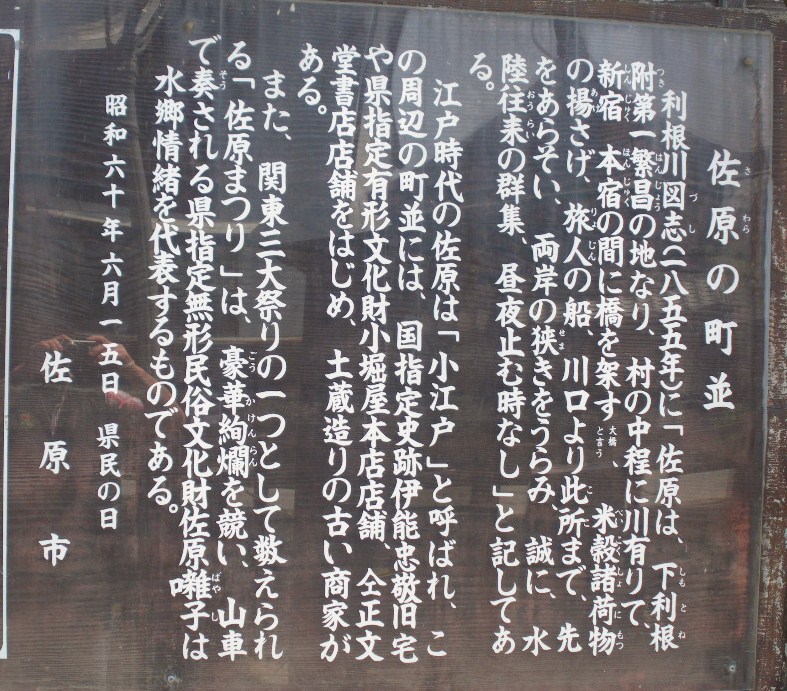 佐原の町並
利根川図志(一八五五年)に「佐原は、下利根
附第一繁昌の地なり、村の中程に川有りて、
新宿 本宿の間に橋を架す大橋と言う、米穀諸荷物
の揚さげ、旅人の船、川口より此所まで、先
をあらそい、両岸の狭きをうらみ、誠に、水
陸往来の群集、昼夜止む時なし」と記してあ
る。
江戸時代の佐原は「小江戸」と呼ばれ、こ
の周辺の町並には、国指定史跡伊能忠敬旧宅
や県指定有形文化財小堀屋本店店舗、仝正文
堂書店店舗をはじめ、土蔵造りの古い商家が
ある。
また、関東三大祭りの一つとして数えられ
る「佐原まつり」は、豪華絢爛を競い、山車
で奏される県指定無形民俗文化財佐原囃子は
水郷情緒を代表するものである。
昭和六十年六月一五日 県民の日
佐原市